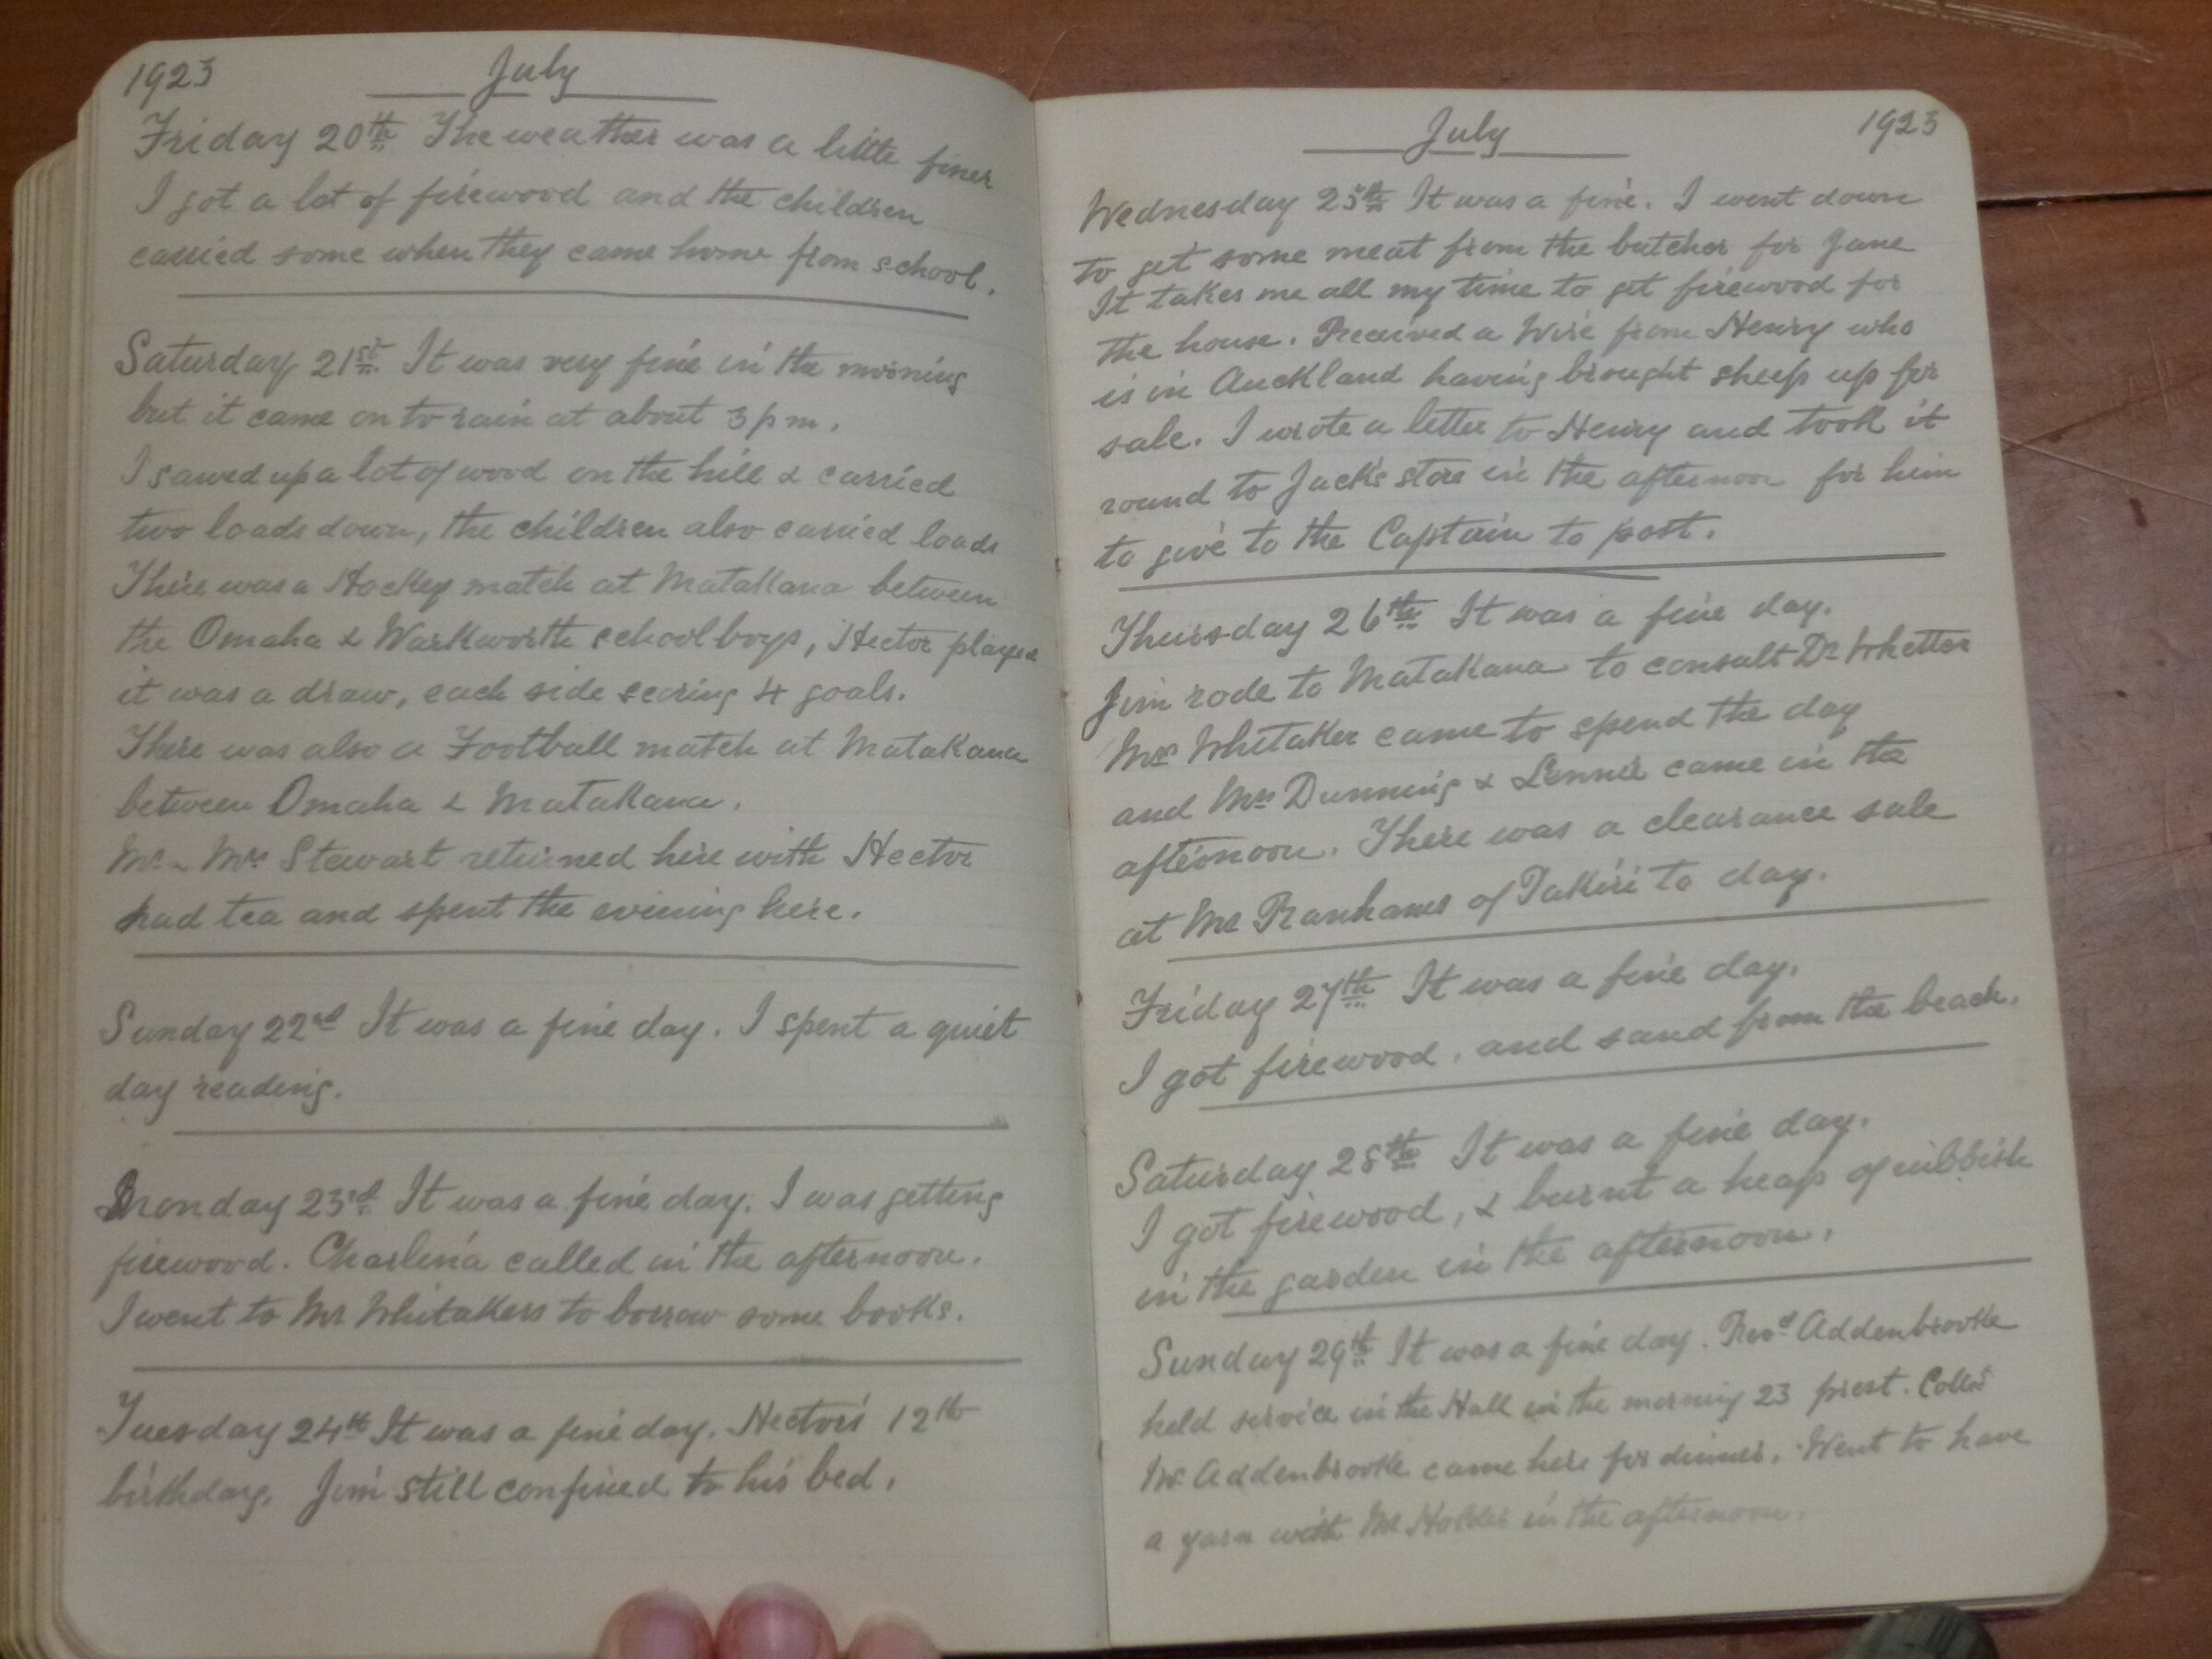 1923
July
Friday 20th The weather was a little finer
I got a lot of firewood and the children
carried some when they came home from school.
Saturday 21st. It was very fine in the morning
but it came on to rain at about 3 pm.
I sawed up a lot of wood on the hill & carried
two loads down, the children also carried loads
There was a Hockey match at Matakana between
the Omaha & Warkworth school boys, Hector played
it was a draw, each side scoring 4 goals.
There was also a Football match at Matakana
between Omaha & Matakana.
Mr. & Mrs Stewart returned here with Hector
had tea and spent the evening here.
Sunday 22nd It was a fine day. I spent a quiet
day reading.
Monday 23rd It was a fine day. I was getting
firewood. Charlena called in the afternoon.
I went to Mr Whitakers to borrow some books.
Tuesday 24th It was a fine day. Hector's 12th
birthday. Jim still confined to his bed.
July
1923
Wednesday 25th It was a fine. I went down
to get some meat from the butcher for Jane
It takes me all my time to get firewood for
the house. Received a Wire from Henry who
is in Auckland having brought sheep up for
sale. I wrote a letter to Henry and took it
round to Jack's store in the afternoon for him
to give to the Captain to post.
Thursday 26th It was a fine day.
Jim rode to Matakana to consult Dr Whetter
Mrs Whitaker came to spend the day
and Mrs Dunning & Lennie came in the
afternoon. There was a clearance sale
at Mr of to day.
Friday 27th It was a fine day.
I got firewood, and sand from the beach.
Saturday 28th It was a fine day.
I got firewood, & burnt a heap of rubbish
in the garden in the afternoon.
Sunday 29th It was a fine day. Revd Addenbrooke
held service in the Hall in the morning 23
Mr. Addenbrooke came here for dinner. Went to have
a yarn with Mr in the afternoon.